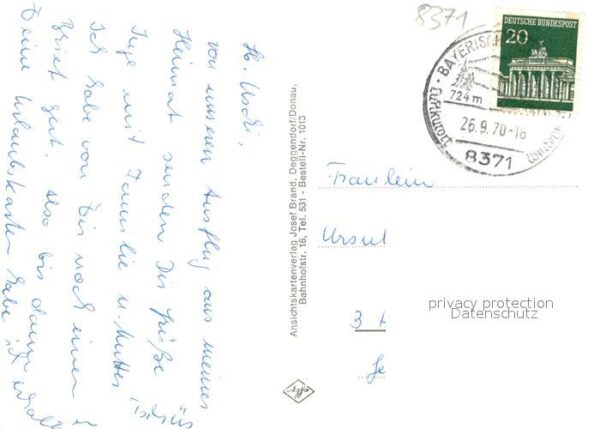 H. Uschi,
von unserem Ausflug aus meiner
Heimat senden Dir Grüße
Inge mit Familie u. Mutter
Tschüs
Ich habe von Dir noch einen
Brief gut, also bis dann
Deine Urlaubskarten habe ich erhalt
Ansichtskartenverlag Josef Brand, Deggendorf/Donau,
Bahnhofstr. 16, Tel. 531 - Bestell-Nr. 1013
8371
DEUTSCHE BUNDESPOST
20
BAYERISCH
724 m
Luftkurort
26.9.70-18
8371
Fräulein
Ursul
3
privacy protection
Datenschutz